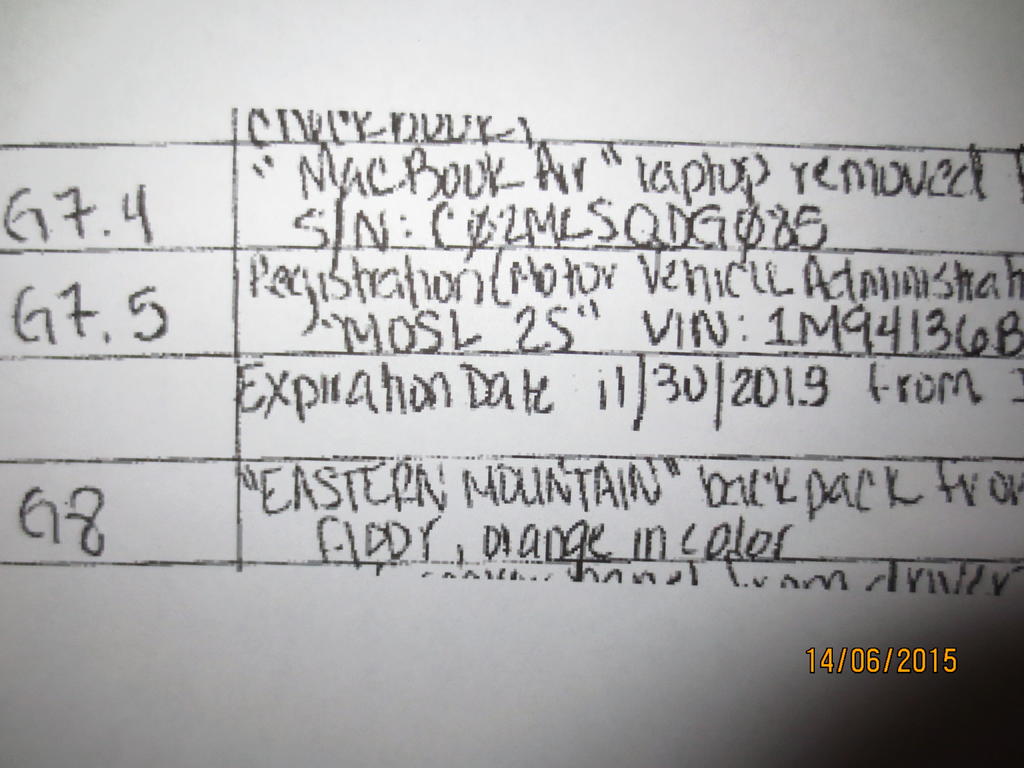 G7.4 "MacBook Air" laptop removed
S/N: C02MLSQDG085
G7.5 Registration (Motor Vehicle Administrati
"MOSL 25" VIN: 1M94136B
Expiration Date 11/30/2019 from
G8 "EASTERN MOUNTAIN" back pack from
floor, orange in color
from driver
14/06/2015